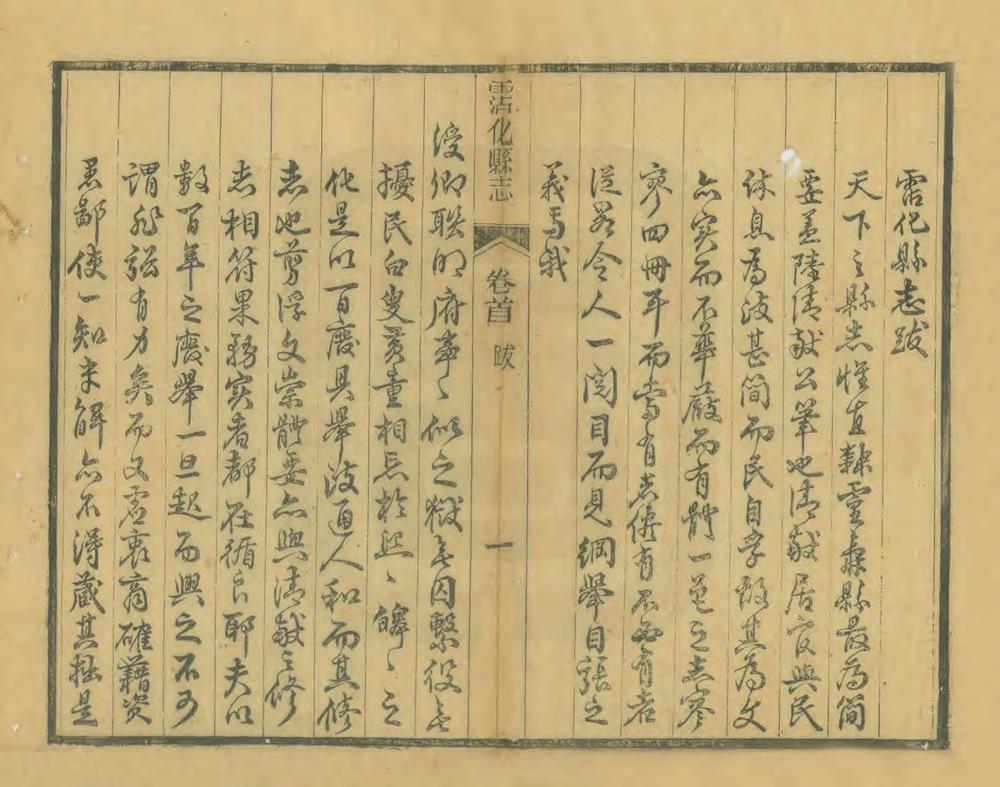 霑化縣志跋
天下之縣志惟直隸靈壽縣最為簡
要盖陸清獻公筆也清獻居官與民
休息為政甚簡而民自孚故其為文
亦實而不華嚴而有體一邑之志寥
寥四冊耳而當有者備有不必有者
從畧令人一閱目而見綱舉目張之
義焉我
霑化縣志
卷首
跋
一
授卿聯明府事之獄無囚繫役無
擾民白叟黃童相忘於熙〻皞〻之
化是以百廢具舉政通人和而其修
志也剪浮文崇體要亦與清獻之修
志相符果務實者都在循良耶夫以
數百年之廢舉一旦起而興之不可
謂非强有力矣而又虛衷商確藉資
愚鄙使一知半解亦不得藏其拙是